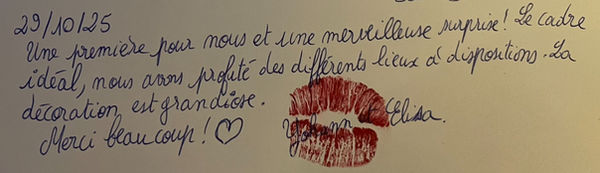 29/10/25
Une première pour nous et une merveilleuse surprise ! Le cadre
idéal, nous avons profité des différents lieux à dispositions. La
décoration est grandiose.
Merci beaucoup ! ♡ Yohann & Elisa.